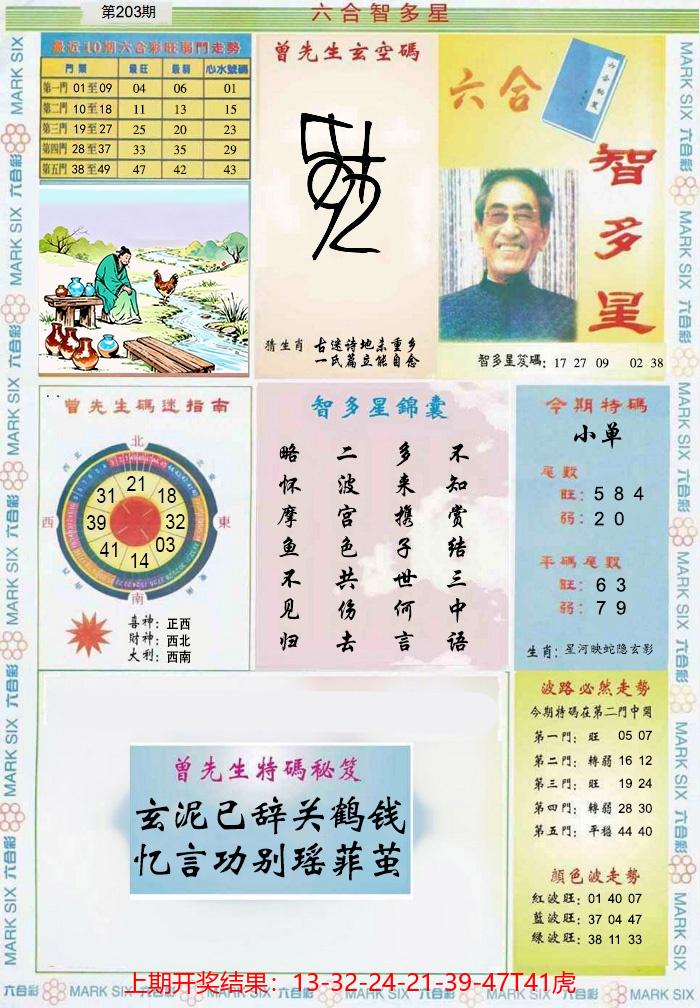 第203期
六合智多星
最近10期六合彩旺弱門走勢
門類 最旺 最弱 心水號碼
第一門 01至09 04 06 01
第二門 10至18 11 13 15
第三門 19至27 25 20 23
第四門 28至37 33 35 29
第五門 38至49 47 42 43
曾先生玄空碼
猜生肖
古迷诗地未重乡
一氏篇立能自念
六合
六合秘笈
智多星
智多星笈碼: 17 27 09 02 38
曾先生碼迷指南
北
西
東
南
21
18
32
03
14
41
39
31
喜神: 正西
財神: 西北
大利: 西南
智多星錦囊
不知赏结三中语
多来携子世何言
二波宫色共伤去
略怀摩鱼不见归
今期特碼
小单
尾數
旺: 5 8 4
弱: 2 0
平碼尾數
旺: 6 3
弱: 7 9
生肖: 星河映蛇隐玄影
曾先生特碼秘笈
玄泥已辞关鹤钱
忆言功别瑶菲茧
波路必然走勢
今期特碼在第二門中開
第一門: 旺 05 07
第二門: 轉弱 16 12
第三門: 旺 19 24
第四門: 轉弱 28 30
第五門: 平穩 44 40
顏色波走勢
紅波旺: 01 40 07
藍波旺: 37 04 47
綠波旺: 38 11 33
上期开奖结果：13-32-24-21-39-47T41虎
六合彩 MARK SIX 六合彩 MARK SIX 六合彩 MARK SIX 六合彩 MARK SIX 六合彩